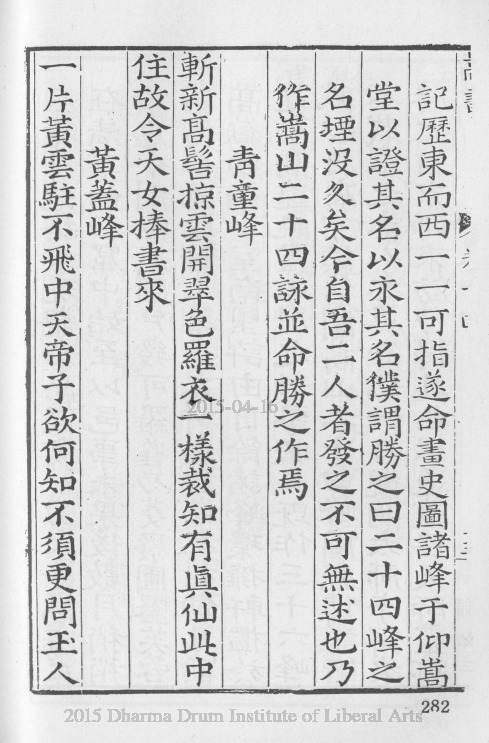 記歷東而西一一可指遂命畫史圖諸峰于仰嵩
堂以證其名以永其名獛謂勝之曰二十四峰之
名堙没久矣今自吾二人者發之不可無述也乃
作嵩山二十四詠並命勝之作焉
青童峰
斬新髙髻掠雲開翠色羅衣一樣裁知有眞仙此中
住故令天女捧書來
黃蓋峰
一片黃雲駐不飛中天帝子欲何知不須更問玉人
282
2015-04-16
2015 Dharma Drum Institute of Liberal Arts